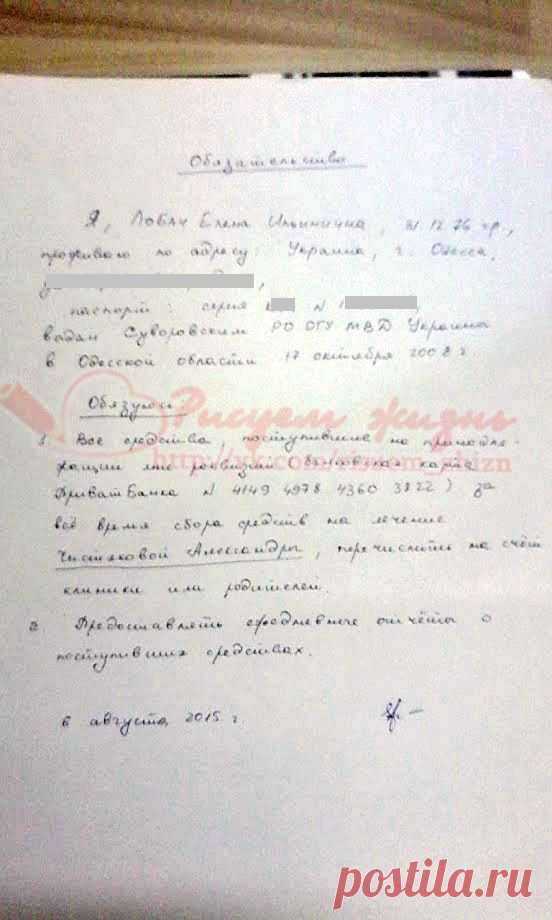 Обязательство
Я, Лобач Елена Ильинична, 31.12.76 г.р.,
проживаю по адресу: Украина, г. Одесса,
паспорт: серия N
выдан Суворовским РО ОГУ МВД Украины
в Одесской области 17 октября 2008 г
Обязуюсь:
Рисуем жизнь
1. Все средства, поступившие на принадле-
жащии мне реквизит банковская карта
http://vk.com/risuem_zhizn
ПриватБанка N 4149 4978 4360 3822) за
всё время сбора средств на лечение
Чистяковой Александры, перечислить на счёт
клиники или родителей.
2. Предоставлять ежедневные отчёты о
поступивших средствах.
6 августа 2015 г.
postila.ru